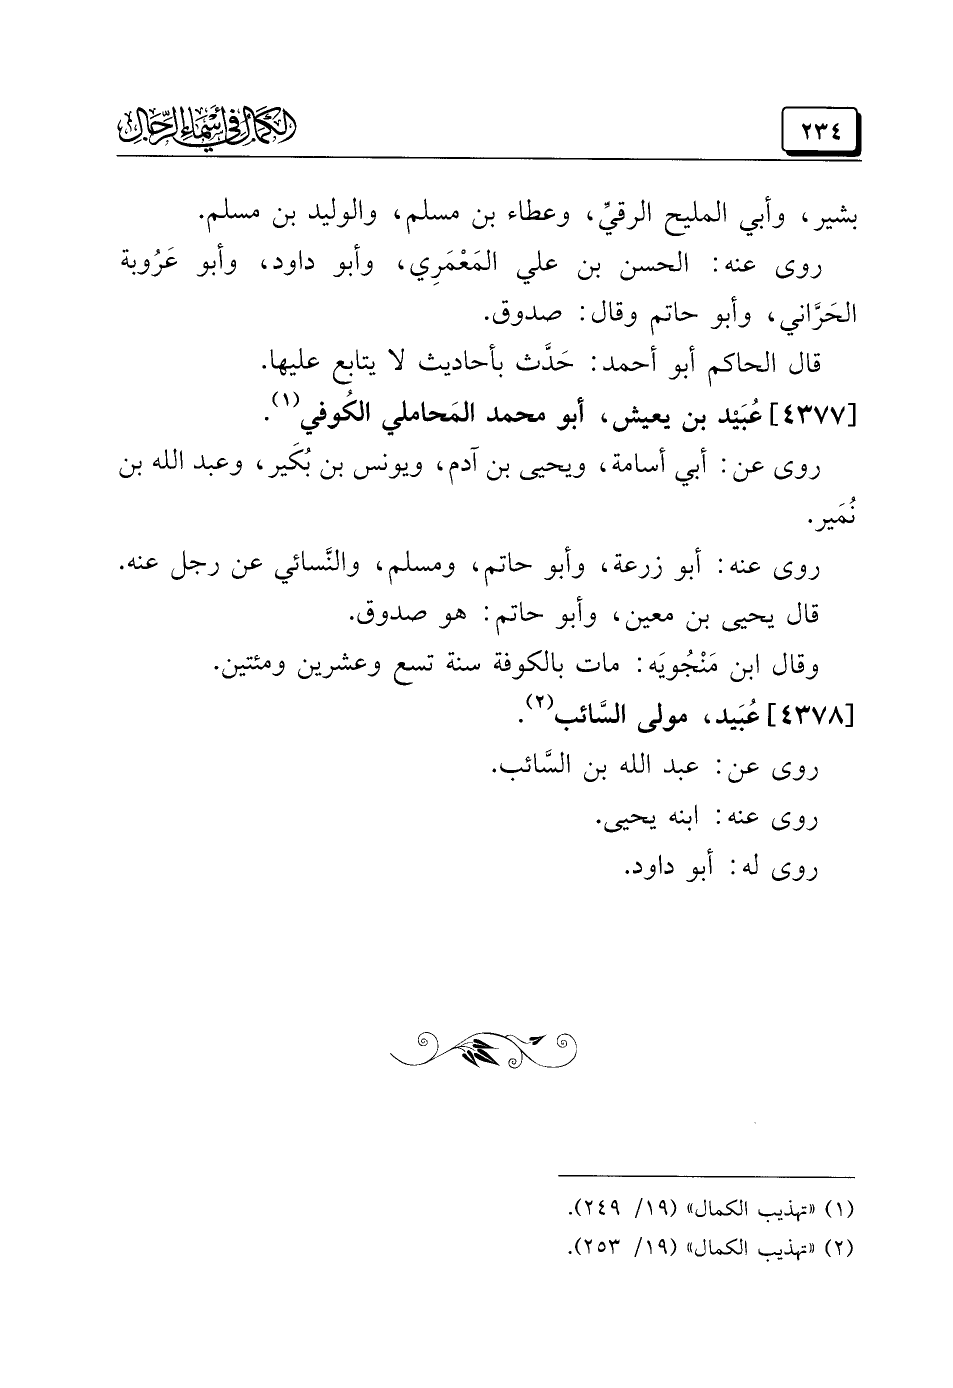 ٢٣٤
الكمال في أسماء الرجال
بشير، وأبي المليح الرقيِّ، وعطاء بن مسلم، والوليد بن مسلم.
روى عنه: الحسن بن علي المَعْمَرِي، وأبو داود، وأبو عَرُوبة
الحَرَّاني، وأبو حاتم وقال: صدوق.
قال الحاكم أبو أحمد: حَدَّث بأحاديث لا يتابع عليها.
[٤٣٧٧] عُبَيْد بن يعيش، أبو محمد المَحاملي الكُوفي(١).
روى عن: أبي أسامة، ويحيى بن آدم، ويونس بن بُكَير، وعبد الله بن
نُمَير.
روى عنه: أبو زرعة، وأبو حاتم، ومسلم، والنَّسائي عن رجل عنه.
قال يحيى بن معين، وأبو حاتم: هو صدوق.
وقال ابن مَنْجُويَه: مات بالكوفة سنة تسع وعشرين ومئتين.
[٤٣٧٨] عُبَيد، مولى السَّائب(٢).
روى عن: عبد الله بن السَّائب.
روى عنه: ابنه يحيى.
روى له: أبو داود.
(١) «تهذيب الكمال» (١٩/ ٢٤٩).
(٢) «تهذيب الكمال» (١٩/ ٢٥٣).